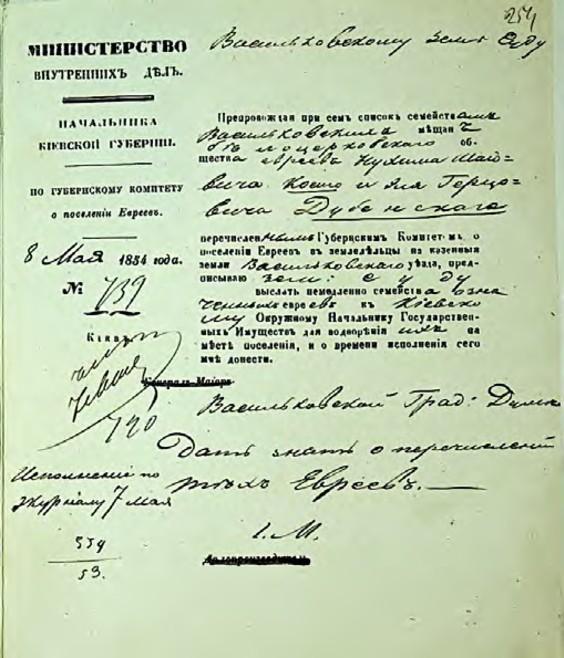 254
Васильковскому Зем: Суду
МИНИСТЕРСТВО
ВНУТРЕННИХЪ ДѢЛЪ.
НАЧАЛЬНИКА
КІЕВСКОЙ ГУБЕРНІИ.
ПО ГУБЕРНСКОМУ КОМИТЕТУ
о поселеніи Евреевъ.
8 Мая 1854 года.
№ 739
Кіевъ
Препровождая при семъ списокъ семействамъ
Васильковскихъ мѣщан
Бѣлоцерковскаго об-
щества евреевъ Нухима
вича и Герцо-
вича Дубенскаго
перечисленнымъ Губернскимъ Комитетомъ о
поселеніи Евреевъ въ земледѣльцы на казенныя
земли Васильковскаго уѣзда, пред-
писываю Зем: Суду
выслать немедленно семейства озна
ченныхъ евреевъ къ Кіевско
му Окружному Начальнику Государствен-
ныхъ Имуществъ для водворенія ихъ на
мѣстѣ поселенія, и о времени исполненія сего
мнѣ донести.
Генералъ-Маіоръ
720
Васильковской Град: Думѣ
Дать знать о перечисленіи
тѣхъ Евреевъ.
Исполненіе по
журналу 7 мая
І. М.
559
53.
Дѣлопроизводитель